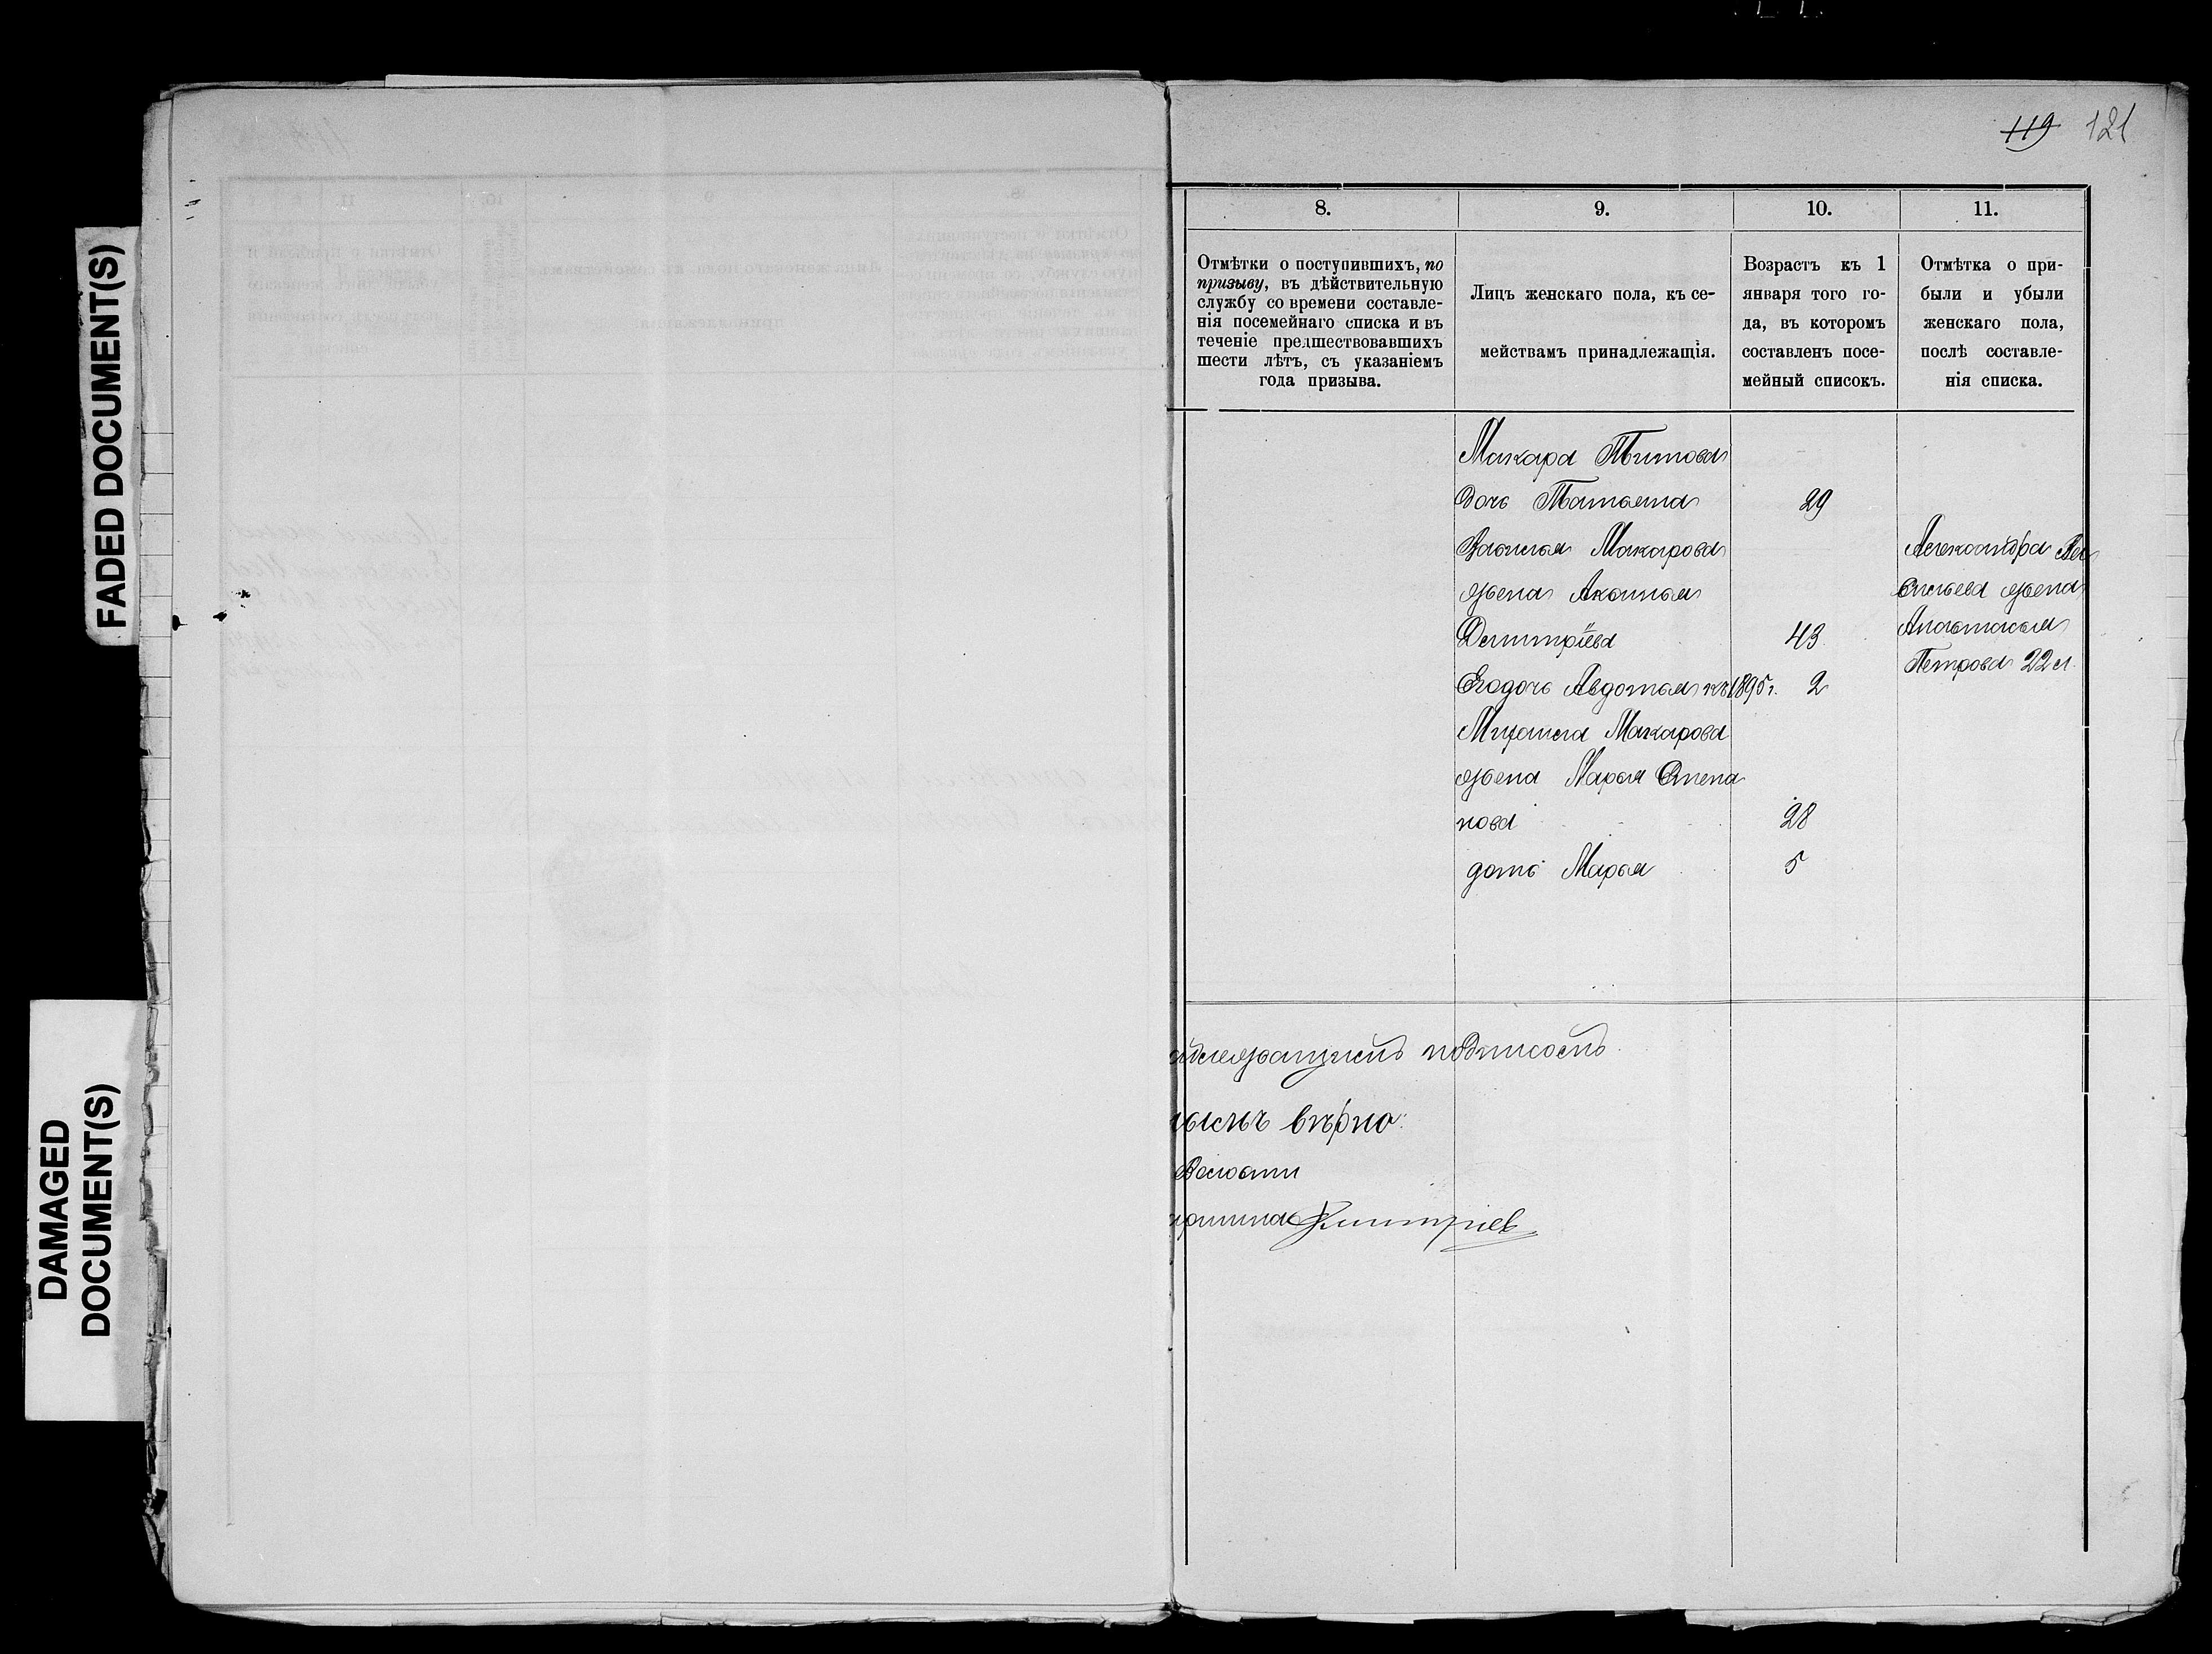 FADED DOCUMENT(S)
DAMAGED
DOCUMENT(S)
119 121
8. 9. 10. 11.
Отмѣтки о поступившихъ, по
призыву, въ дѣйствительную
службу со времени составле-
нія посемейнаго списка и въ
теченіе предшествовавшихъ
шести лѣтъ, съ указаніемъ
года призыва.
Лицъ женскаго пола, къ се-
мействамъ принадлежащія.
Возрастъ къ 1
января того го-
да, въ которомъ
составленъ посе-
мейный списокъ.
Отмѣтка о при-
были и убыли
женскаго пола,
послѣ составле-
нія списка.
Макара Титова
дочь Татьяна 29
Василья Макарова
жена Аксинья
Дмитріева 43
Его дочь Авдотья къ 1895 г. 2
Михаила Макарова
жена Марья Степа
нова 28
дочь Марья 5
Александра Ва
сильева жена
Петрова 22 л.
подписомъ
вѣрно:
Волости
Дмитріев